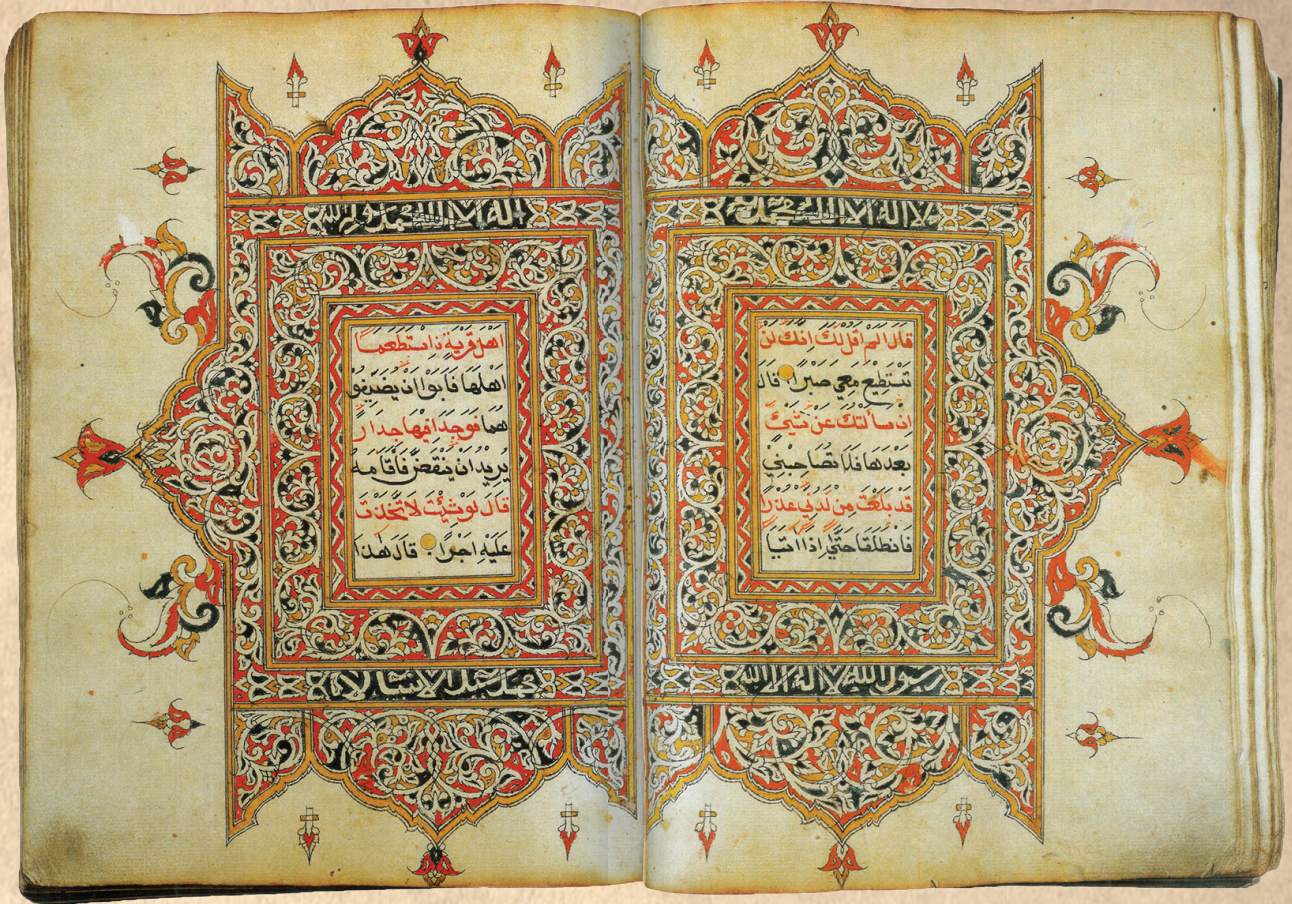 لا اله الا الله محمد
قَالَ اَلَمْ اَقُلْ لَكَ اِنَّكَ لَنْ
تَسْتَطِيعَ مَعِيَ صَبْرًا قَالَ
اِنْ سَاَلْتُكَ عَنْ شَيْءٍ
بَعْدَهَا فَلَا تُصَاحِبْنِي
قَدْ بَلَغْتَ مِنْ لَدُنِّي عُذْرًا
فَانْطَلَقَا حَتَّى اِذَا اَتَيَا
رسول الله لا اله الا الله
اله الا الله محمد رسول الله
اَهْلَ قَرْيَةٍ اسْتَطْعَمَا
اَهْلَهَا فَاَبَوْا اَنْ يُضَيِّفُوْ
هُمَا فَوَجَدَا فِيْهَا جِدَار
يُرِيْدُ اَنْ يَنْقَضَّ فَاَقَامَهُ
قَالَ لَوْ شِئْتَ لَاتَّخَذْتَ
عَلَيْهِ اَجْرًا قَالَ هٰذَا